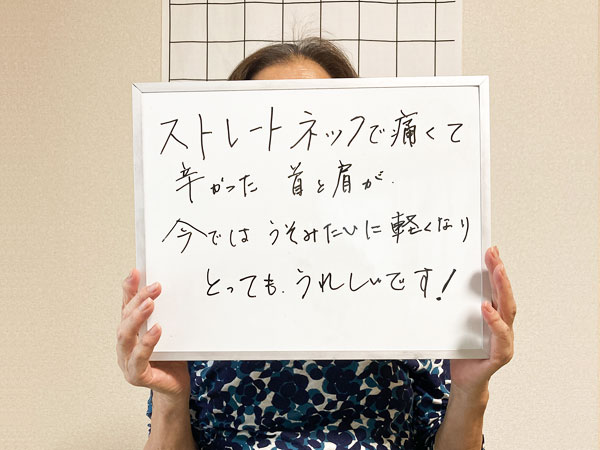 ストレートネックで痛くて
辛かった 首と肩が、
今では うそみたいに 軽くなり
とっても、うれしいです！